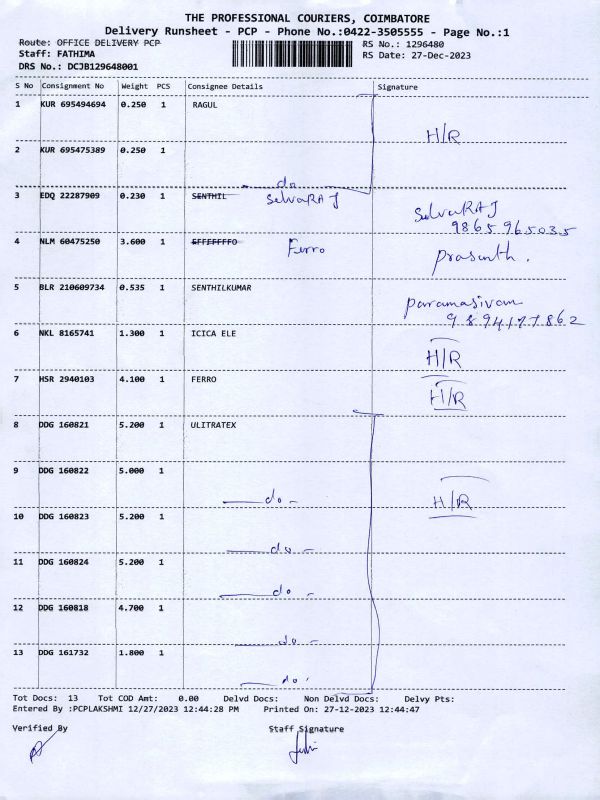 THE PROFESSIONAL COURIERS, COIMBATORE
Delivery Runsheet - PCP - Phone No.:0422-3505555 - Page No.:1
Route: OFFICE DELIVERY PCP
RS No.: 1296480
Staff: FATHIMA
RS Date: 27-Dec-2023
DRS No.: DCJB129648001
S No Consignment No Weight PCS Consignee Details Signature
1 KUR 695494694 0.250 1 RAGUL
H/R
2 KUR 695475389 0.250 1
do
3 EDQ 22287909 0.230 1 SENTHIL SelvaRAJ
SelvaRAJ
9865965035
4 NLM 60475250 3.600 1 Ferro
prasanth.
5 BLR 210609734 0.535 1 SENTHILKUMAR
paramasivam
9894177862
6 NKL 8165741 1.300 1 ICICA ELE
H/R
7 HSR 2940103 4.100 1 FERRO
H/R
8 DDG 160821 5.200 1 ULITRATEX
9 DDG 160822 5.000 1
do - H/R
10 DDG 160823 5.200 1
do -
11 DDG 160824 5.200 1
do -
12 DDG 160818 4.700 1
do -
13 DDG 161732 1.800 1
do.
Tot Docs: 13 Tot COD Amt: 0.00 Delvd Docs: Non Delvd Docs: Delvy Pts:
Entered By :PCPLAKSHMI 12/27/2023 12:44:28 PM Printed On: 27-12-2023 12:44:47
Verified By Staff Signature